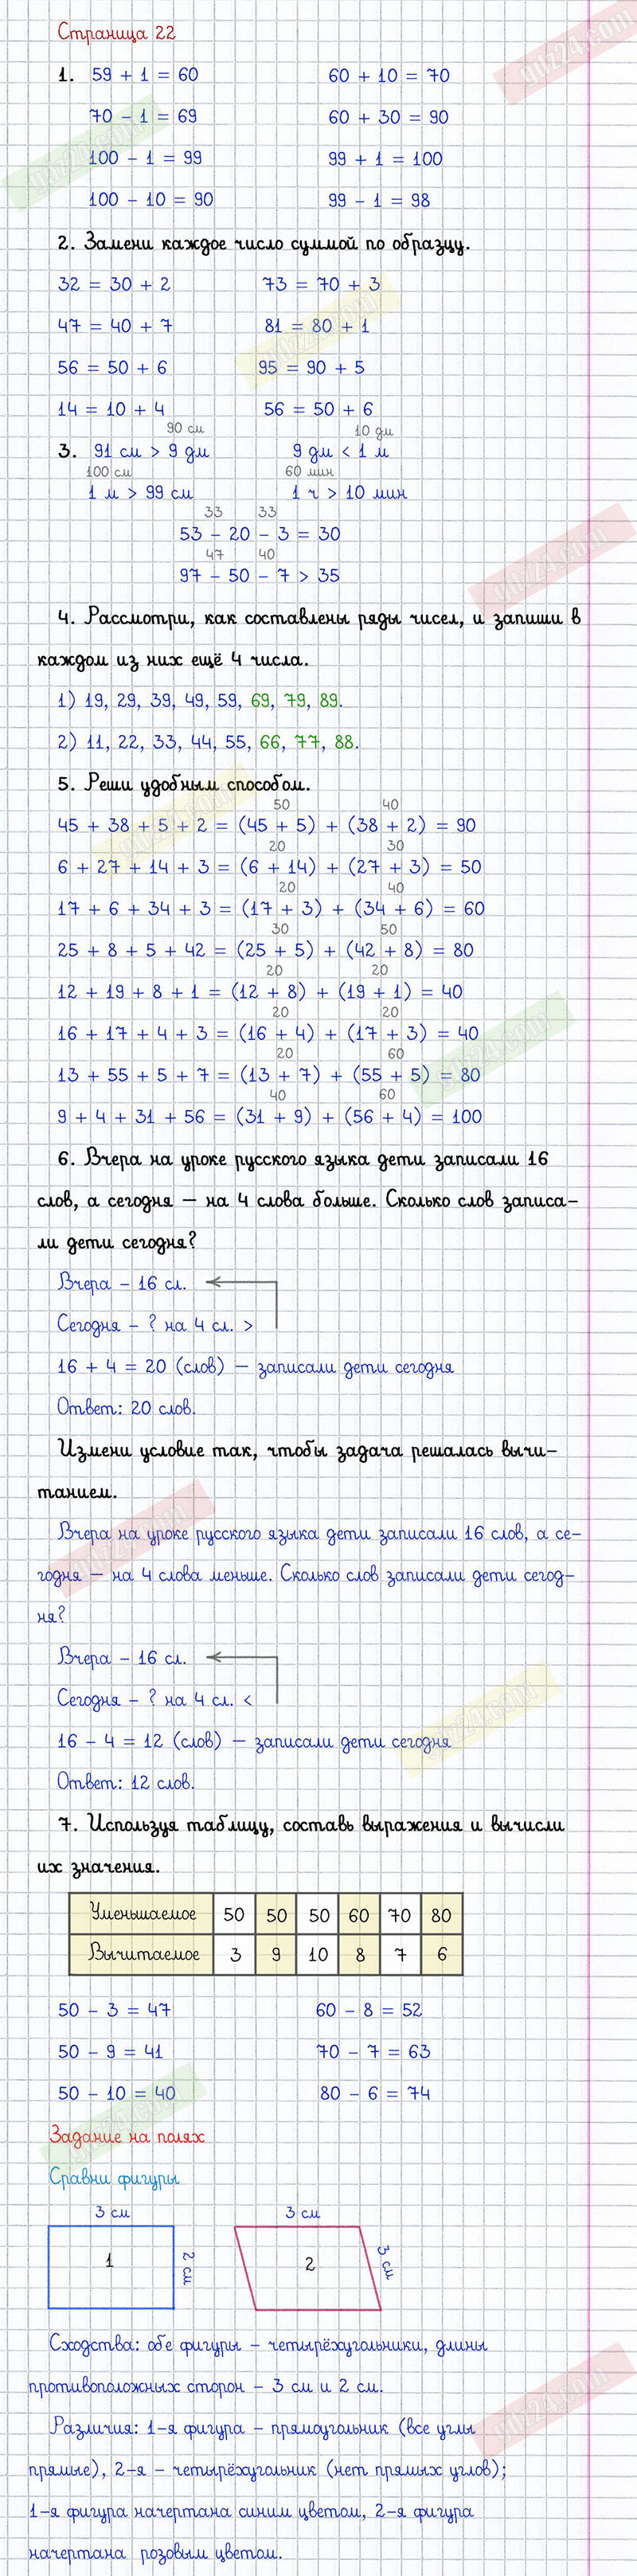 Страница 22
1. 59 + 1 = 60 60 + 10 = 70
70 - 1 = 69 60 + 30 = 90
100 - 1 = 99 99 + 1 = 100
100 - 10 = 90 99 - 1 = 98
2. Замени каждое число суммой по образцу.
32 = 30 + 2 73 = 70 + 3
47 = 40 + 7 81 = 80 + 1
56 = 50 + 6 95 = 90 + 5
14 = 10 + 4 56 = 50 + 6
90 см 10 дм
3. 91 см > 9 дм 9 дм < 1 м
100 см 60 мин
1 м > 99 см 1 ч > 10 мин
33 33
53 - 20 - 3 = 30
47 40
97 - 50 - 7 > 35
4. Рассмотри, как составлены ряды чисел, и запиши в
каждом из них ещё 4 числа.
1) 19, 29, 39, 49, 59, 69, 79, 89.
2) 11, 22, 33, 44, 55, 66, 77, 88.
5. Реши удобным способом.
50 40
45 + 38 + 5 + 2 = (45 + 5) + (38 + 2) = 90
20 30
6 + 27 + 14 + 3 = (6 + 14) + (27 + 3) = 50
20 40
17 + 6 + 34 + 3 = (17 + 3) + (34 + 6) = 60
30 50
25 + 8 + 5 + 42 = (25 + 5) + (42 + 8) = 80
20 20
12 + 19 + 8 + 1 = (12 + 8) + (19 + 1) = 40
20 20
16 + 17 + 4 + 3 = (16 + 4) + (17 + 3) = 40
20 60
13 + 55 + 5 + 7 = (13 + 7) + (55 + 5) = 80
40 60
9 + 4 + 31 + 56 = (31 + 9) + (56 + 4) = 100
6. Вчера на уроке русского языка дети записали 16
слов, а сегодня – на 4 слова больше. Сколько слов записа-
ли дети сегодня?
Вчера – 16 сл.
Сегодня – ? на 4 сл. >
16 + 4 = 20 (слов) – записали дети сегодня
Ответ: 20 слов.
Измени условие так, чтобы задача решалась вычи-
танием.
Вчера на уроке русского языка дети записали 16 слов, а се-
годня – на 4 слова меньше. Сколько слов записали дети сегод-
ня?
Вчера – 16 сл.
Сегодня – ? на 4 сл. <
16 - 4 = 12 (слов) – записали дети сегодня
Ответ: 12 слов.
7. Используя таблицу, составь выражения и вычисли
их значения.
Уменьшаемое 50 50 50 60 70 80
Вычитаемое 3 9 10 8 7 6
50 - 3 = 47 60 - 8 = 52
50 - 9 = 41 70 - 7 = 63
50 - 10 = 40 80 - 6 = 74
Задание на полях
Сравни фигуры
3 см 3 см
1 2 см 2 3 см
Сходства: обе фигуры – четырёхугольники, длины
противоположных сторон – 3 см и 2 см.
Различия: 1-я фигура – прямоугольник (все углы
прямые), 2-я – четырёхугольник (нет прямых углов);
1-я фигура начертана синим цветом, 2-я фигура
начертана розовым цветом.
gdz24.com
gdz24.com
gdz24.com
gdz24.com
gdz24.com
gdz24.com
gdz24.com
gdz24.com
gdz24.com
gdz24.com